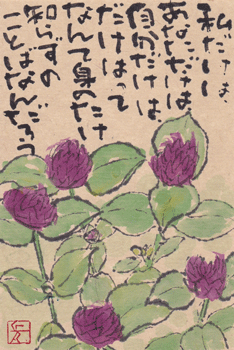 私だけは、
あなただけは、
自分だけは、
だけはって
なんて身のたけ
知らずの
ことばなんだろう